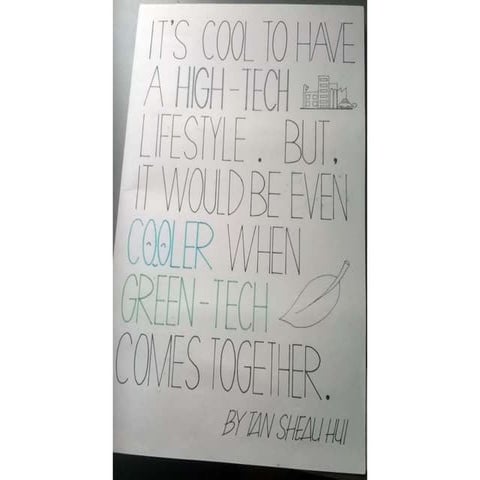 IT'S COOL TO HAVE
A HIGH-TECH
LIFESTYLE. BUT,
IT WOULD BE EVEN
COOLER WHEN
GREEN-TECH
COMES TOGETHER.
BY TAN SHEAU HUI